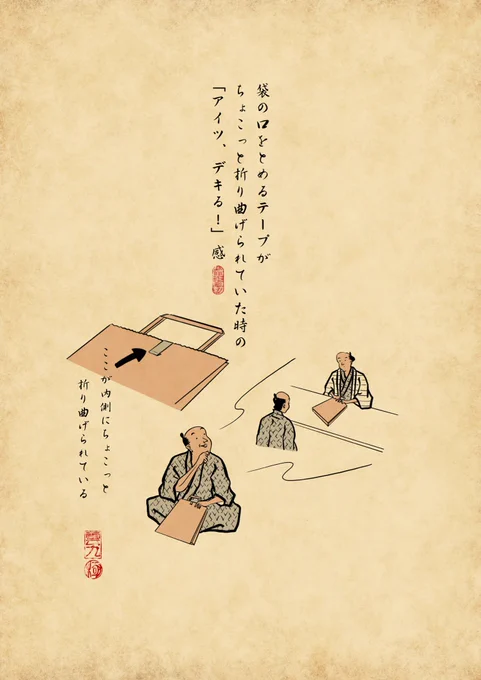 袋の口をとめるテープが
ちょこっと折り曲げられていた時の
「アイツ、デキる!」感
ここが内側にちょこっと
折り曲げられている